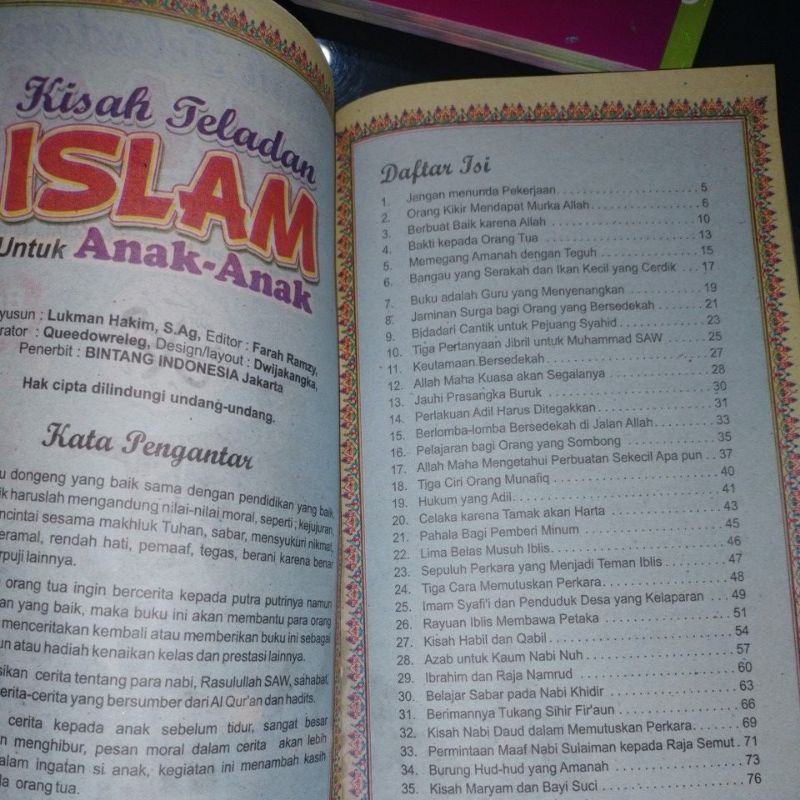 Kisah Teladan
ISLAM
Untuk Anak-Anak
yusun : Lukman Hakim, S.Ag, Editor : Farah Ramzy,
rator : Queedowreleg, Design/layout : Dwijakangka,
Penerbit : BINTANG INDONESIA Jakarta
Hak cipta dilindungi undang-undang.
Kata Pengantar
u dongeng yang baik sama dengan pendidikan yang baik.
ik haruslah mengandung nilai-nilai moral, seperti; kejujuran,
ncintai sesama makhluk Tuhan, sabar, mensyukuri nikmat,
eramal, rendah hati, pemaaf, tegas, berani karena benar
rpuji lainnya.
orang tua ingin bercerita kepada putra putrinya namun
an yang baik, maka buku ini akan membantu para orang
menceritakan kembali atau memberikan buku ini sebagai
un atau hadiah kenaikan kelas dan prestasi lainnya.
sikan cerita tentang para nabi, Rasulullah SAW, sahabat,
erita-cerita yang bersumber dari Al Qur'an dan hadits.
cerita kepada anak sebelum tidur, sangat besar
n menghibur, pesan moral dalam cerita akan lebih
alam ingatan si anak, kegiatan ini menambah kasih
da orang tua.
Daftar Isi
1. Jangan menunda Pekerjaan 5
2. Orang Kikir Mendapat Murka Allah 6
3. Berbuat Baik karena Allah 10
4. Bakti kepada Orang Tua 13
5. Memegang Amanah dengan Teguh 15
6. Bangau yang Serakah dan Ikan Kecil yang Cerdik 17
7. Buku adalah Guru yang Menyenangkan 19
8. Jaminan Surga bagi Orang yang Bersedekah 21
9. Bidadari Cantik untuk Pejuang Syahid 23
10. Tiga Pertanyaan Jibril untuk Muhammad SAW 25
11. Keutamaan Bersedekah 27
12. Allah Maha Kuasa akan Segalanya 28
13. Jauhi Prasangka Buruk 30
14. Perlakuan Adil Harus Ditegakkan 31
15. Berlomba-lomba Bersedekah di Jalan Allah 33
16. Pelajaran bagi Orang yang Sombong 35
17. Allah Maha Mengetahui Perbuatan Sekecil Apa pun 37
18. Tiga Ciri Orang Munafiq 40
19. Hukum yang Adil 41
20. Celaka karena Tamak akan Harta 43
21. Pahala Bagi Pemberi Minum 45
22. Lima Belas Musuh Iblis 46
23. Sepuluh Perkara yang Menjadi Teman Iblis 47
24. Tiga Cara Memutuskan Perkara 48
25. Imam Syafi'i dan Penduduk Desa yang Kelaparan 49
26. Rayuan Iblis Membawa Petaka 51
27. Kisah Habil dan Qabil 54
28. Azab untuk Kaum Nabi Nuh 57
29. Ibrahim dan Raja Namrud 60
30. Belajar Sabar pada Nabi Khidir 63
31. Berimannya Tukang Sihir Fir'aun 66
32. Kisah Nabi Daud dalam Memutuskan Perkara 69
33. Permintaan Maaf Nabi Sulaiman kepada Raja Semut 71
34. Burung Hud-hud yang Amanah 73
35. Kisah Maryam dan Bayi Suci 76